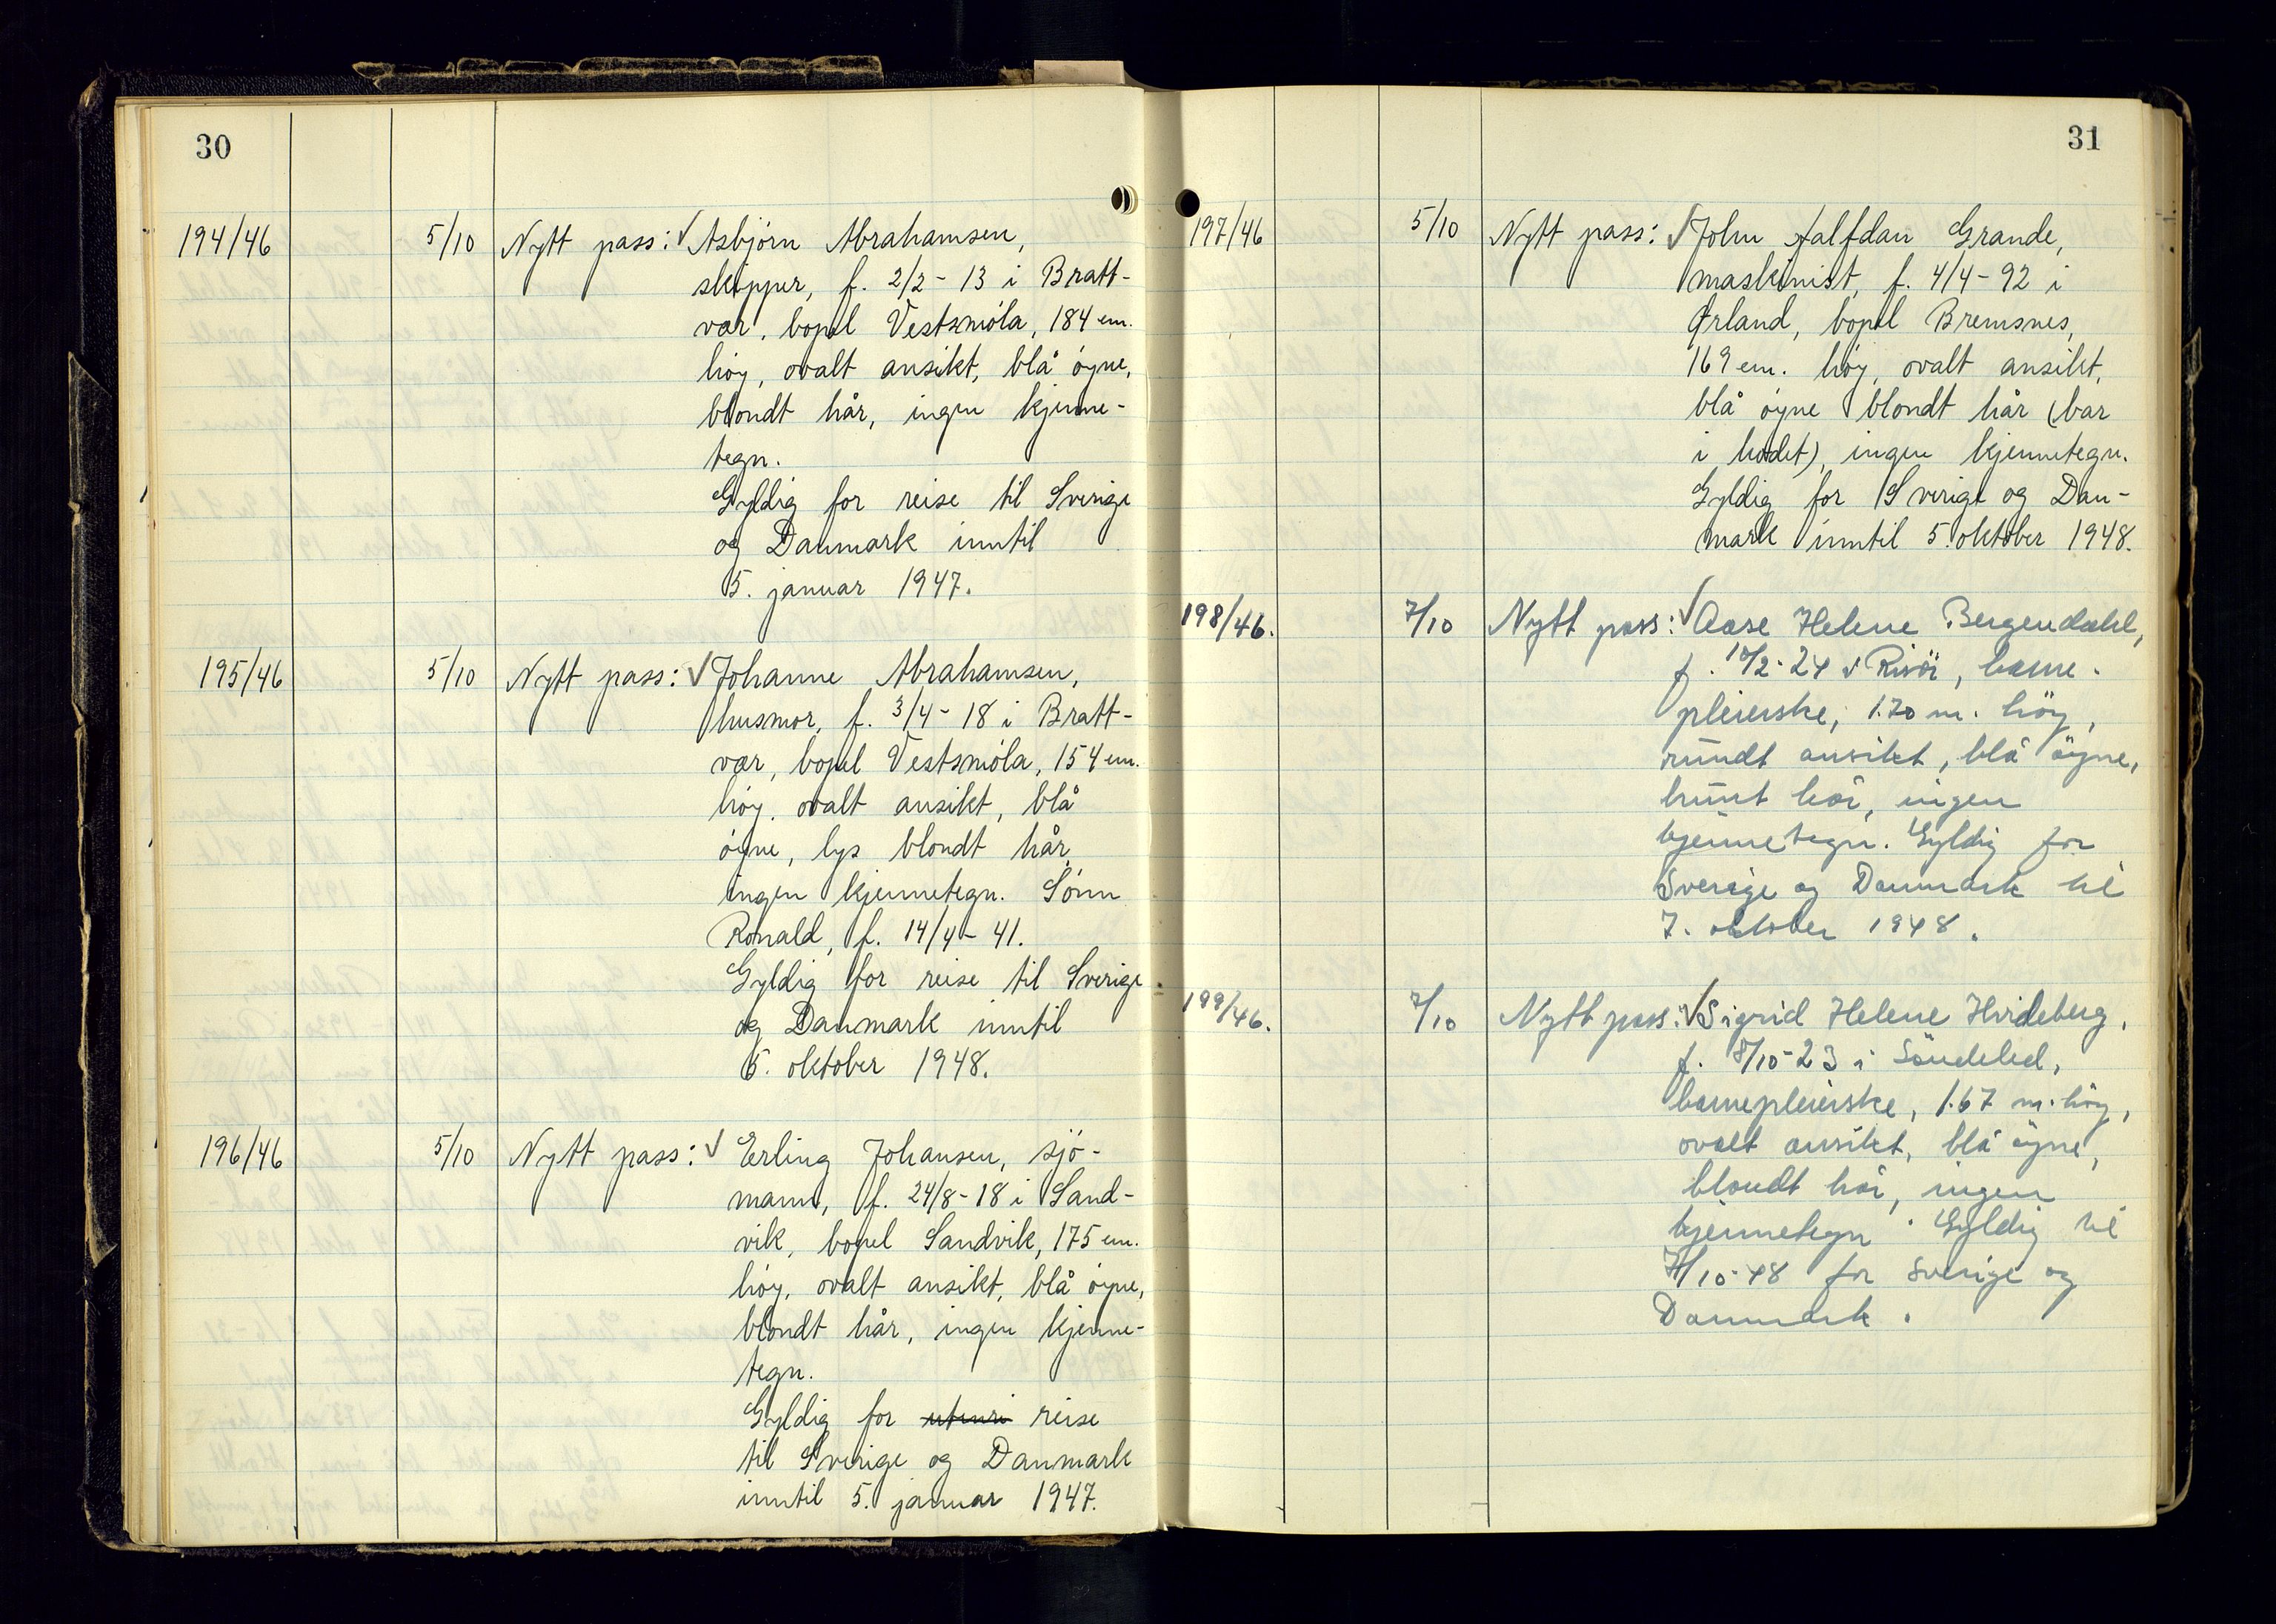 30
194/46 5/10 Nytt pass: √ Asbjörn Abrahamsen,
skipper, f. 2/2 - 13 i Bratt-
vær, bopel Vestsmöla, 184 cm.
höy, ovalt ansikt, blå öyne,
blondt hår, ingen kjenne-
tegn.
Gyldig for reise til Sverige
og Danmark inntil
5. januar 1947.
195/46 5/10 Nytt pass: √ Johanne Abrahamsen,
husmor, f. 3/4 - 18 i Bratt-
vær, bopel Vestsmöla, 154 cm.
höy, ovalt ansikt, blå
öyne, lys blondt hår,
ingen kjennetegn. Sönn
Ronald, f. 14/4 - 41.
Gyldig for reise til Sverige
og Danmark inntil
5. oktober 1948.
196/46 5/10 Nytt pass: √ Erling Johansen, sjö-
mann, f. 24/8 - 18 i Sand-
vik, bopel Sandvik, 175 cm.
höy, ovalt ansikt, blå öyne,
blondt hår, ingen kjenne-
tegn.
Gyldig for reise
til Sverige og Danmark
inntil 5. januar 1947.
31
197/46 5/10 Nytt pass: √ John Halfdan Grande,
maskinist, f. 4/4 - 92 i
Ørland, bopel Bremsnes,
169 cm. höy, ovalt ansikt,
blå öyne blondt hår (bar
i hodet), ingen kjennetegn.
Gyldig for Sverige og Dan-
mark inntil 5. oktober 1948.
198/46. 7/10 Nytt pass: √ Aase Helene Bergendahl,
f. 10/2 - 24 i Risör, barne-
pleierske, 1.70 m. höy,
rundt ansikt, blå öyne,
brunt hår, ingen
kjennetegn. Gyldig for
Sverige og Danmark til
7. oktober 1948.
199/46. 7/10 Nytt pass: √ Sigrid Helene Hvideberg,
f. 8/10 - 23 i Söndeled,
barnepleierske, 1.67 m. höy,
ovalt ansikt, blå öyne,
blondt hår, ingen
kjennetegn. Gyldig til
7/10-48 for Sverige og
Danmark.